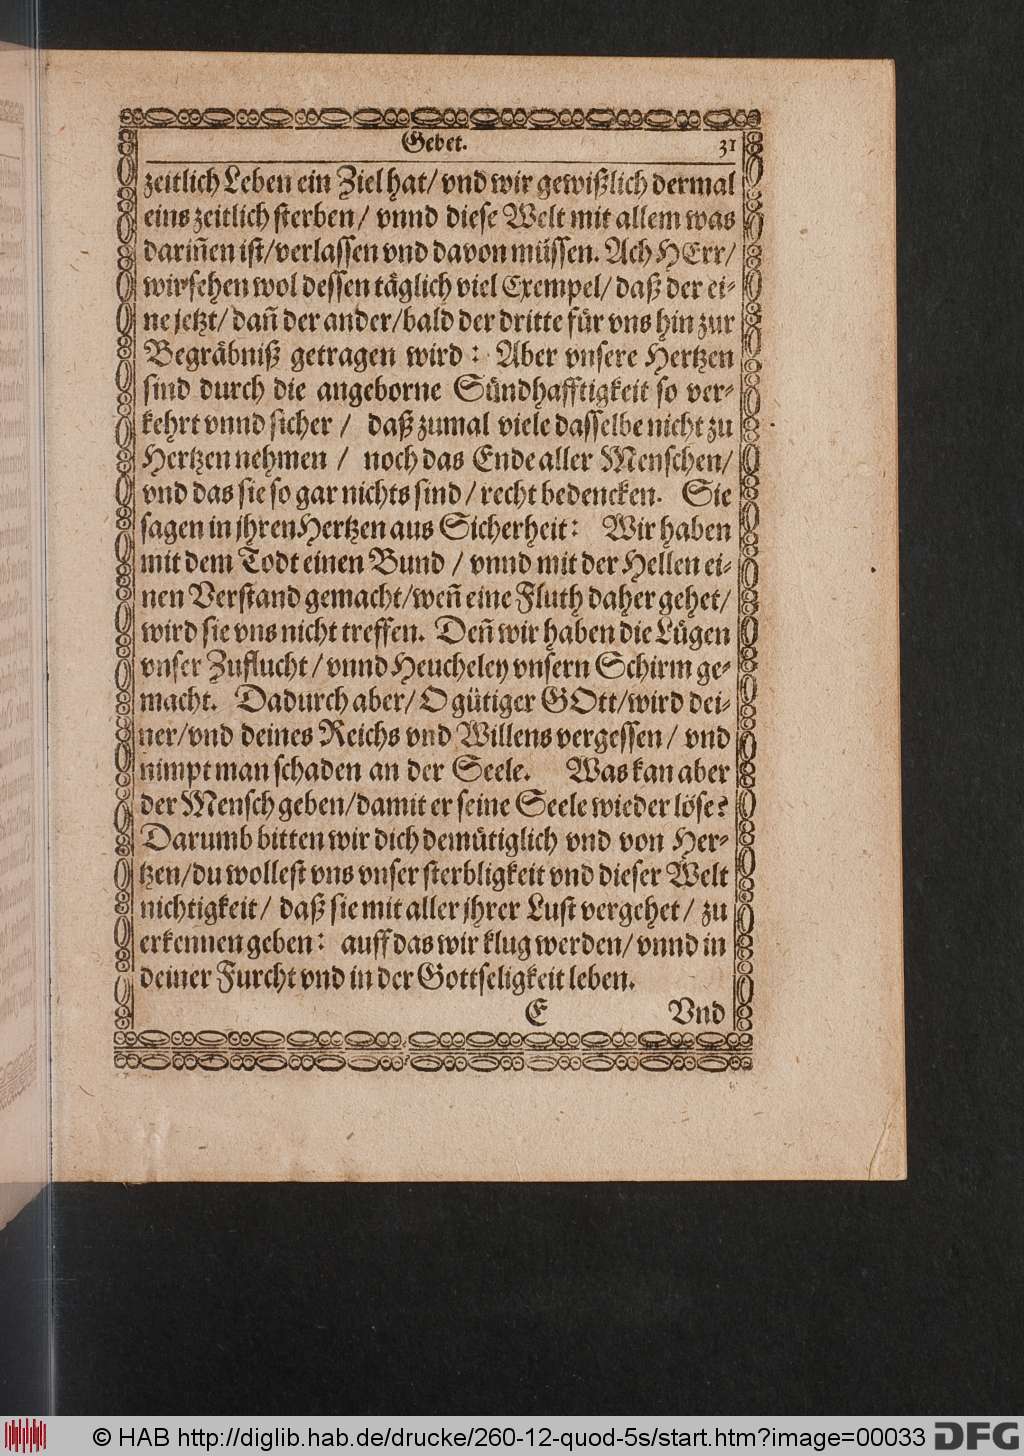 Gebet. 31
zeitlich Leben ein Ziel hat/ vnd wir gewißlich dermal
eins zeitlich sterben/ vnnd diese Welt mit allem was
dariñen ist/verlassen vnd davon müssen. Ach HErr/
wir sehen wol dessen täglich viel Exempel/ daß der ei-
ne jetzt/ dañ der ander/bald der dritte für vns hin zur
Begräbniß getragen wird: Aber vnsere Hertzen
sind durch die angeborne Sündhafftigkeit so ver-
kehrt vnnd sicher / daß zumal viele dasselbe nicht zu
Hertzen nehmen / noch das Ende aller Menschen/
vnd das sie so gar nichts sind / recht bedencken. Sie
sagen in jhren Hertzen aus Sicherheit: Wir haben
mit dem Todt einen Bund / vnnd mit der Hellen ei-
nen Verstand gemacht/weñ eine Fluth daher gehet/
wird sie vns nicht treffen. Deñ wir haben die Lügen
vnser Zuflucht / vnnd Heucheley vnsern Schirm ge-
macht. Dadurch aber/ O gütiger GOtt/wird dei-
ner/vnd deines Reichs vnd Willens vergessen/ vnd
nimpt man schaden an der Seele. Was kan aber
der Mensch geben/damit er seine Seele wieder löse?
Darumb bitten wir dich demütiglich vnd von Her-
tzen/du wollest vns vnser sterbligkeit vnd dieser Welt
nichtigkeit/ daß sie mit aller jhrer Lust vergehet/ zu
erkennen geben: auff das wir klug werden/ vnnd in
deiner Furcht vnd in der Gottseligkeit leben.
E Vnd
© HAB http://diglib.hab.de/drucke/260-12-quod-5s/start.htm?image=00033 DFG